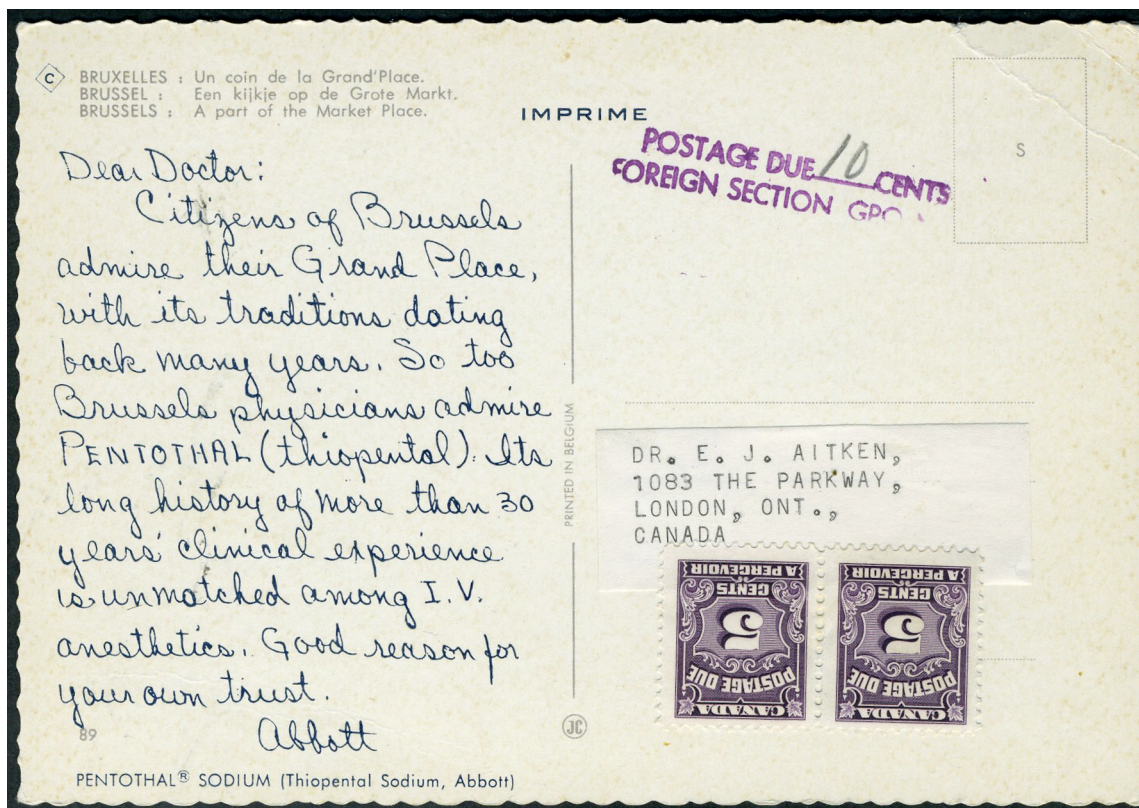 C
BRUXELLES : Un coin de la Grand'Place.
BRUSSEL : Een kijkje op de Grote Markt.
BRUSSELS : A part of the Market Place.
IMPRIME
POSTAGE DUE 10 CENTS
FOREIGN SECTION GPO
S
Dear Doctor:
Citizens of Brussels
admire their Grand Place,
with its traditions dating
back many years. So too
Brussels physicians admire
PENTOTHAL (thiopental). Its
long history of more than 30
years' clinical experience
is unmatched among I.V.
anesthetics. Good reason for
your own trust.
Abbott
89
JC
PENTOTHAL® SODIUM (Thiopental Sodium, Abbott)
PRINTED IN BELGIUM
DR. E. J. AITKEN,
1083 THE PARKWAY,
LONDON, ONT.,
CANADA
CANADA
POSTAGE DUE
5
CENTS
A PERCEVOIR
CANADA
POSTAGE DUE
5
CENTS
A PERCEVOIR